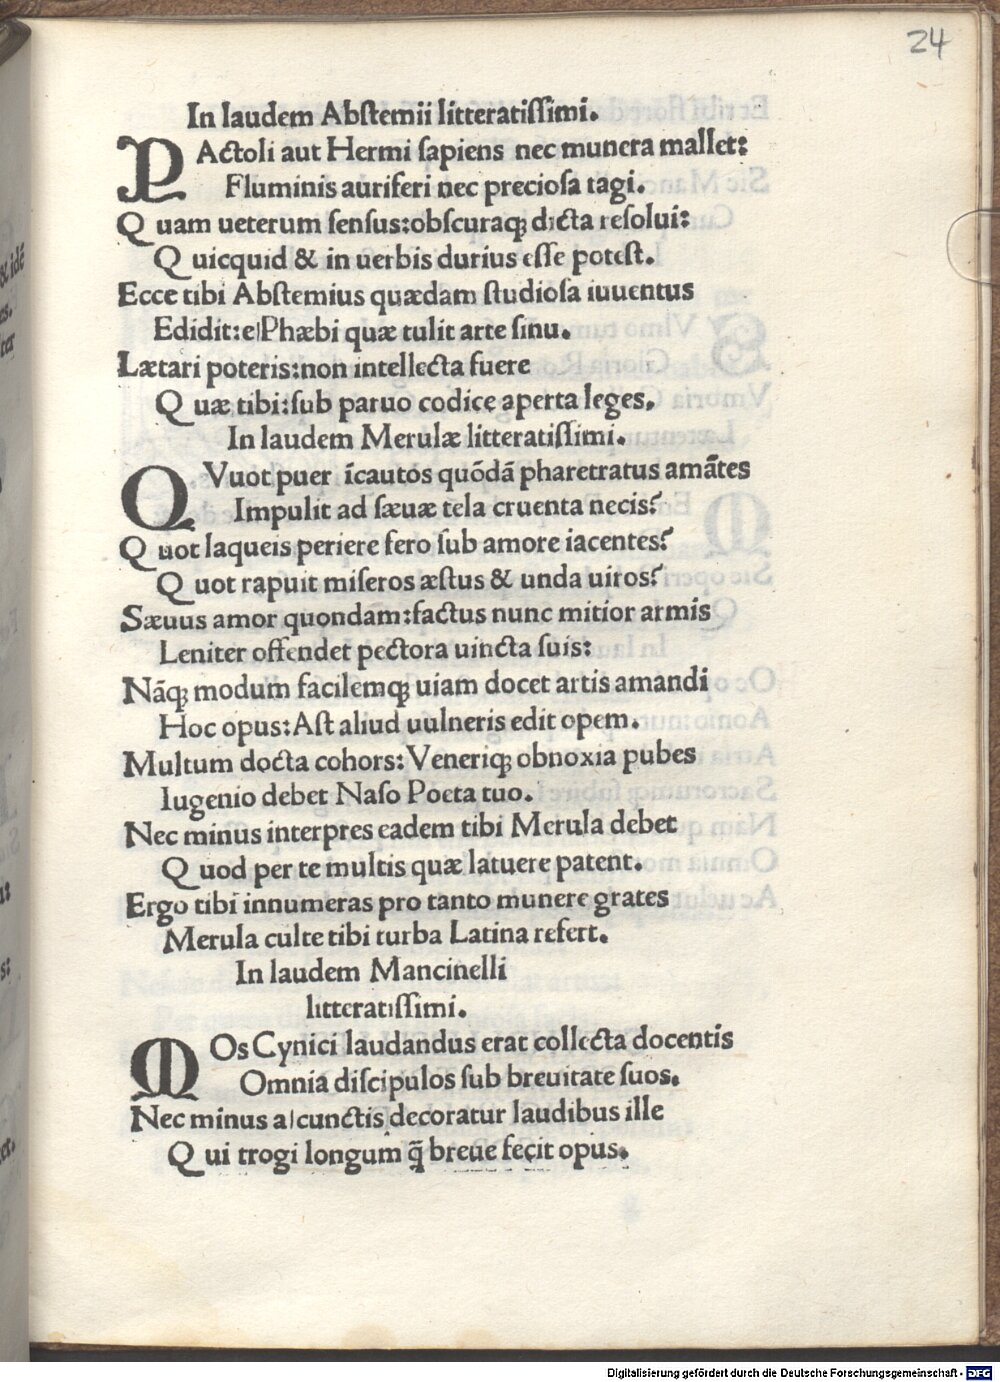 24
In laudem Abſtemii litteratiſſimi.
PActoli aut Hermi ſapiens nec munera mallet:
Fluminis auriferi nec precioſa tagi.
Quam ueterum ſenſus:obſcuraqꝫ dicta reſolui:
Quicquid & in uerbis durius eſſe poteſt.
Ecce tibi Abſtemius quædam ſtudioſa iuuentus
Edidit:e Phæbi quæ tulit arte ſinu.
Lætari poteris:non intellecta fuere
Quæ tibi:ſub paruo codice aperta leges.
In laudem Merulæ litteratiſſimi.
QVuot puer īcautos quōdā pharetratus amātes
Impulit ad ſæuæ tela cruenta necis?
Quot laqueis periere fero ſub amore iacentes?
Quot rapuit miſeros æſtus & unda uiros?
Sæuus amor quondam:factus nunc mitior armis
Leniter offendet pectora uincta ſuis:
Nāqꝫ modum facilemqꝫ uiam docet artis amandi
Hoc opus:Aſt aliud uulneris edit opem.
Multum docta cohors:Veneriqꝫ obnoxia pubes
Iugenio debet Naſo Poeta tuo.
Nec minus interpres eadem tibi Merula debet
Quod per te multis quæ latuere patent.
Ergo tibi innumeras pro tanto munere grates
Merula culte tibi turba Latina refert.
In laudem Mancinelli
litteratiſſimi.
MOs Cynici laudandus erat collecta docentis
Omnia diſcipulos ſub breuitate ſuos.
Nec minus a cunctis decoratur laudibus ille
Qui trogi longum q̄ breue fecit opus.
Digitalisierung gefördert durch die Deutsche Forschungsgemeinschaft - DFG